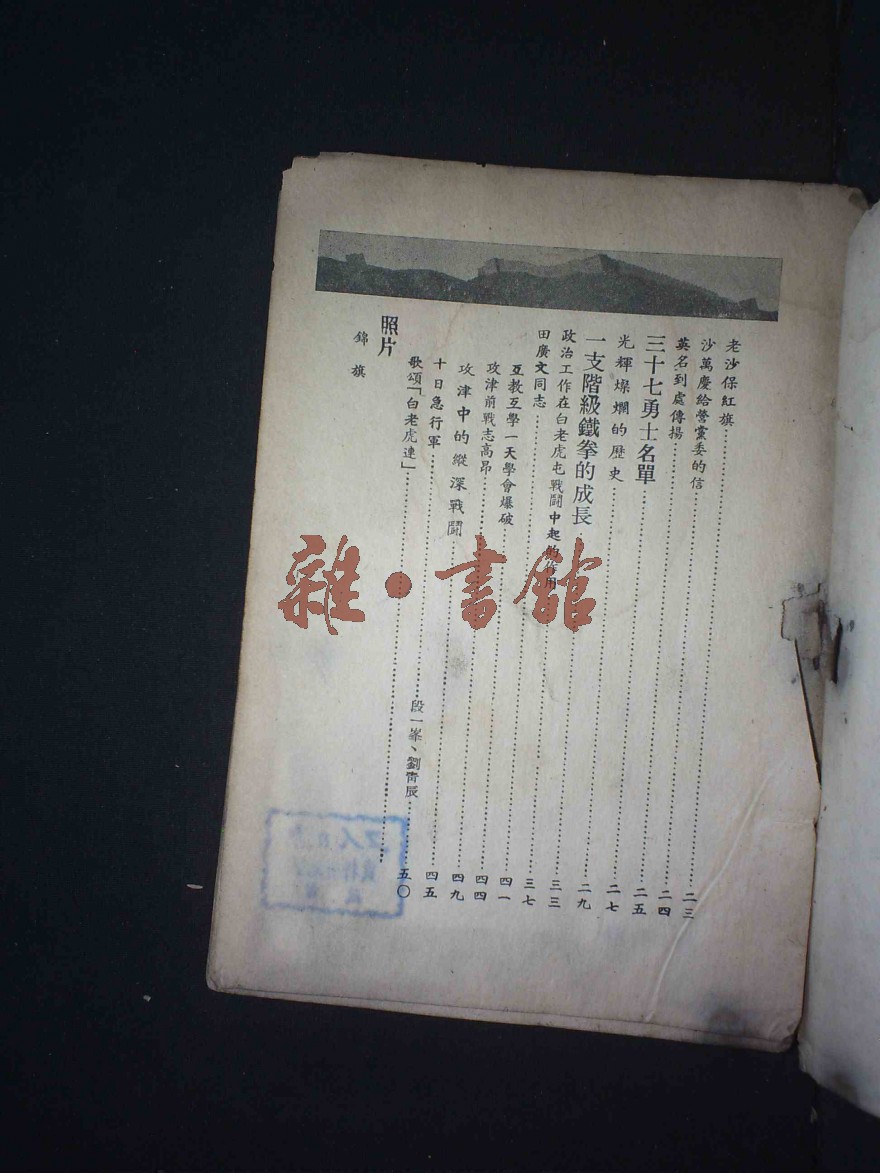 老沙保紅旗……二三
沙萬慶給營黨委的信……二四
英名到處傳揚……二五
三十七勇士名單……二七
光輝燦爛的歷史……二九
一支階級鐵拳的成長……三三
政治工作在白老虎屯戰鬪中起的作用……三七
田廣文同志……四一
互教互學一天學會爆破……四四
攻津前戰志高昂……四九
攻津中的縱深戰鬪……四五
十日急行軍……段一峯、劉齊辰……五〇
歌頌「白老虎連」……
照片
錦旗
雜·書館